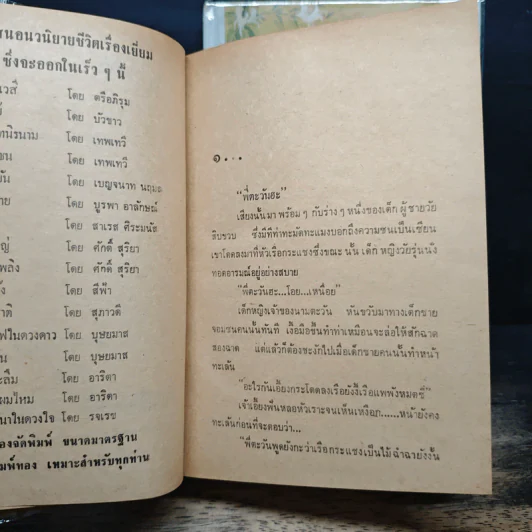 สนอนวนิยายชีวิตเรื่องเยี่ยม
ซึ่งจะออกในเร็ว ๆ นี้
โดย ตรีอภิรุม
โดย บัวขาว
โดย เทพเทวี
โดย เทพเทวี
โดย เบญจนาท นฤมล
โดย บูรพา อาลักษณ์
โดย สาเรส ศิระมนัส
โดย ศักดิ์ สุริยา
เพลิง โดย ศักดิ์ สุริยา
โดย สีฟ้า
โดย สุภาวดี
ในดวงดาว โดย บุษยมาส
โดย บุษยมาส
โดย อาริตา
โดย อาริตา
นาในดวงใจ โดย รจเรข
องจัดพิมพ์ ขนาดมาตรฐาน
มพ์ทอง เหมาะสำหรับทุกท่าน
๑...
"พี่ตะวันฮะ"
เสียงนั้นมา พร้อม ๆ กับร่าง ๆ หนึ่งของเด็ก ผู้ ชายวัย
สิบขวบ ซึ่งมีท่าทะมัดทะแมงบอกถึงความซนเป็นเซียน
เขาโดดลงมาที่หัวเรือกระแชงซึ่งขณะ นั้น เด็ก หญิงวัยรุ่นนั่ง
ทอดอารมณ์อยู่อย่างสบาย
"พี่ตะวันฮะ...โอย...เหนื่อย"
เด็กหญิงเจ้าของนามตะวัน หันขวับมาทางเด็กชาย
จอมซนคนนั้นทันที เงื้อมือขึ้นทำท่าเหมือนจะล่อให้สักฉาด
สองฉาด แต่แล้วก็ต้องชะงักไปเมื่อเด็กชายคนนั้นทำหน้า
ทะเล้น
"อะไรกันเอี้ยงกระโดดลงเรือยังงี้เรือแพพังหมดซี"
เจ้าเอี้ยงพ็นหลอหัวเราะจนเห็นเหงือก...หน้ายังคง
ทะเล้นก่อนที่จะตอบว่า...
"พี่ตะวันพูดยังกะว่าเรือกระแชงเป็นไม้ฉำฉายังงั้น